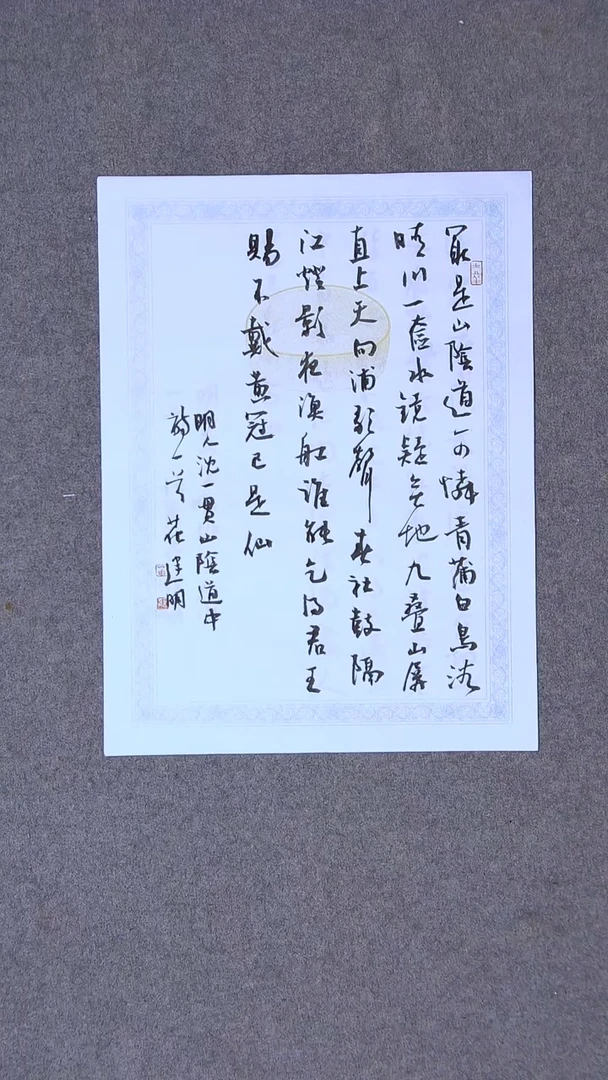 最是山陰道可憐青蒲白鳥浴
晴川一奩水鏡疑無地九疊山屏
直上天向浦歌聲春社鼓隔
江燈影夜漁船誰能乞得君王
賜不戴黃冠已是仙
明人沈一貫山陰道中
詩一首 建明